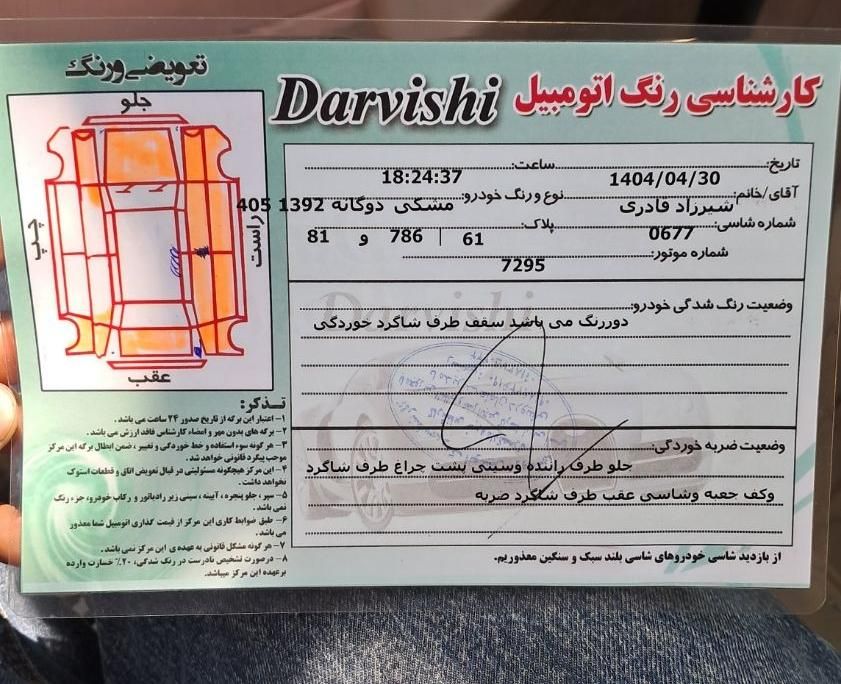 تعویضی و رنگ
جلو
چپ
راست
عقب
Darvishi
کارشناسی رنگ اتومبیل
تاریخ: 1404/04/30 ساعت: 18:24:37
آقای/خانم: شیرزاد قادری نوع و رنگ خودرو: مشکی دوگانه 1392 405
شماره شاسی: 0677 پلاک: 61 | 786 و 81
شماره موتور: 7295
وضعیت رنگ شدگی خودرو:
دوررنگ می باشد سقف طرف شاگرد خوردگی
وضعیت ضربه خوردگی:
جلو طرف راننده وسینی پشت چراغ طرف شاگرد
وکف جعبه وشاسی عقب طرف شاگرد ضربه
از بازدید شاسی خودروهای شاسی بلند سبک و سنگین معذوریم.
تذکر:
۱- اعتبار این برگه از تاریخ صدور ۲۴ ساعت می باشد.
۲- برگه های بدون مهر و امضاء کارشناس فاقد ارزش می باشد.
۳- هر گونه سوء استفاده و خط خوردگی و تغییر، ضمن ابطال برگه این مرکز
موجب پیگرد قانونی خواهد شد.
۴- این مرکز هیچگونه مسئولیتی در قبال تعویض اتاق و قطعات استوک
نخواهد داشت.
۵- سپر، جلو پنجره، آیینه، سینی زیر رادیاتور و رکاب خودرو، جزء رنگ
نمی باشد.
۶- طبق ضوابط کاری این مرکز از قیمت گذاری اتومبیل شما معذور
می باشد.
۷- هر گونه مشکل قانونی به عهده ی این مرکز نمی باشد.
۸- درصورت تشخیص نادرست در رنگ شدگی، ۲۰٪ خسارت وارده
برعهده این مرکز میباشد.